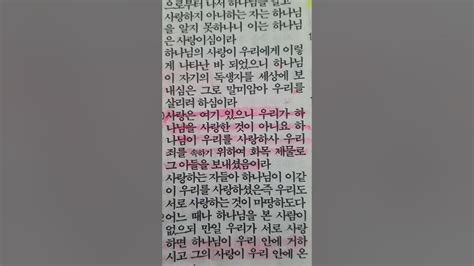 으로부터 나서 하나님을 알고
사랑하지 아니하는 자는 하나님
을 알지 못하나니 이는 하나님
은 사랑이심이라
하나님의 사랑이 우리에게 이렇
게 나타난 바 되었으니 하나님
이 자기의 독생자를 세상에 보
내심은 그로 말미암아 우리를
살리려 하심이라
사랑은 여기 있으니 우리가 하
나님을 사랑한 것이 아니요 하
나님이 우리를 사랑하사 우리
죄를 속하기 위하여 화목 제물로
그 아들을 보내셨음이라
사랑하는 자들아 하나님이 이같
이 우리를 사랑하셨은즉 우리도
서로 사랑하는 것이 마땅하도다
어느 때나 하나님을 본 사람이
없으되 만일 우리가 서로 사랑
하면 하나님이 우리 안에 거하
시고 그의 사랑이 우리 안에 온